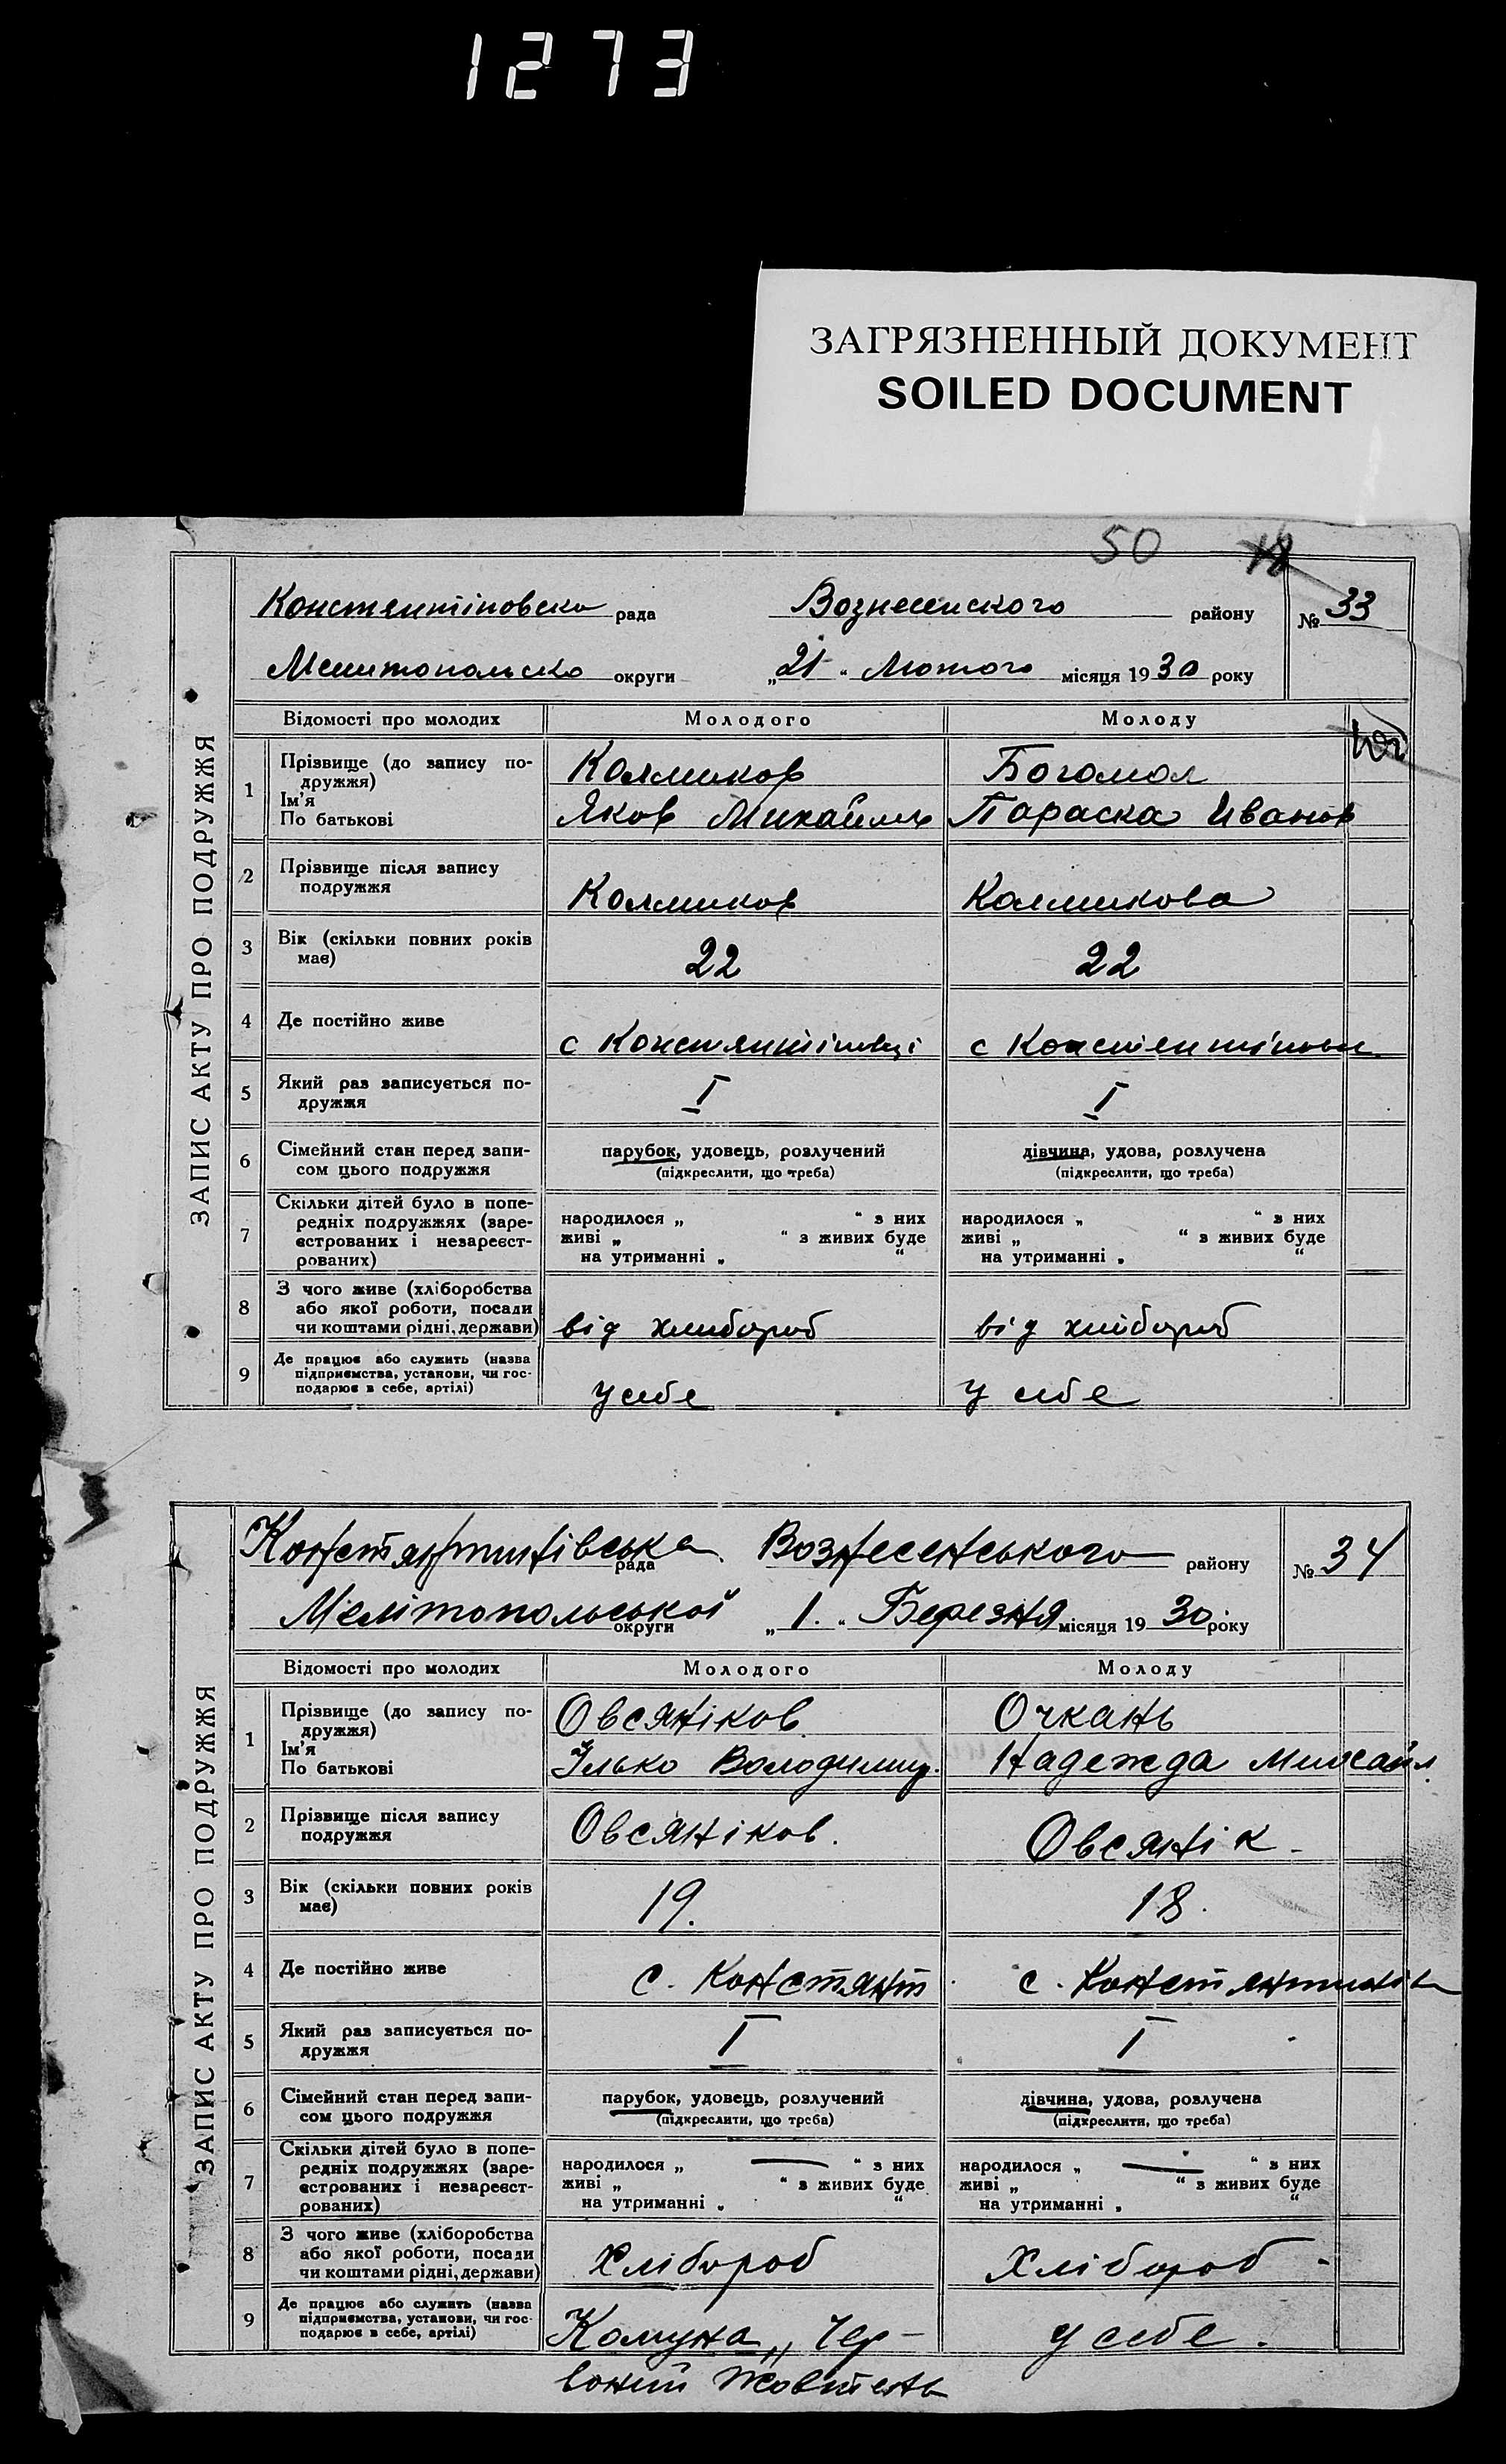 1273
ЗАГРЯЗНЕННЫЙ ДОКУМЕНТ
SOILED DOCUMENT
50 18
ЗАПИС АКТУ ПРО ПОДРУЖЖЯ
Констянтіновска рада Вознесенского району № 33
Мелитопольско округи „21“ Лютого місяця 1930 року
Відомості про молодих Молодого Молоду
1 Прізвище (до запису по-
дружжя) Колмиков Богомол
Ім'я
По батькові Яков Михайлы Параска Иванов
2 Прізвище після запису
подружжя Колмиков Калмикова
3 Вік (скільки повних років
має) 22 22
4 Де постійно живе с Констянтіновці с Констентіновк
5 Який раз записується по-
дружжя I I
6 Сімейний стан перед запи- парубок, удовець, розлучений дівчина, удова, розлучена
сом цього подружжя (підкреслити, що треба) (підкреслити, що треба)
7 Скільки дітей було в попе-
редніх подружжях (заре- народилося „ “ з них народилося „ “ з них
єстрованих і незареєст- живі „ “ з живих буде живі „ “ з живих буде
рованих) на утриманні „ “ на утриманні „ “
8 З чого живе (хліборобства
або якої роботи, посади
чи коштами рідні, держави) від хлибороб від хлібороб
9 Де працює або служить (назва
підприємства, установи, чи гос-
подарює в себе, артілі) у себе у себе
ЗАПИС АКТУ ПРО ПОДРУЖЖЯ
Констянтинівська рада Вознесенського району № 34
Мелітопольської округи „1.“ Березня місяця 1930 року
Відомості про молодих Молодого Молоду
1 Прізвище (до запису по-
дружжя) Овсяніков Очкань
Ім'я
По батькові Ілько Володимир. Надежда Михайл.
2 Прізвище після запису
подружжя Овсяніков. Овсянік -
3 Вік (скільки повних років
має) 19. 18.
4 Де постійно живе с. Констянт с. Констянтинів
5 Який раз записується по-
дружжя I I
6 Сімейний стан перед запи- парубок, удовець, розлучений дівчина, удова, розлучена
сом цього подружжя (підкреслити, що треба) (підкреслити, що треба)
7 Скільки дітей було в попе-
редніх подружжях (заре- народилося „ — “ з них народилося „ — “ з них
єстрованих і незареєст- живі „ “ з живих буде живі „ “ з живих буде
рованих) на утриманні „ “ на утриманні „ “
8 З чого живе (хліборобства
або якої роботи, посади
чи коштами рідні, держави) Хлібороб Хлібороб -
9 Де працює або служить (назва
підприємства, установи, чи гос-
подарює в себе, артілі) Комуна „Чер- у себе.
воний Жовтень